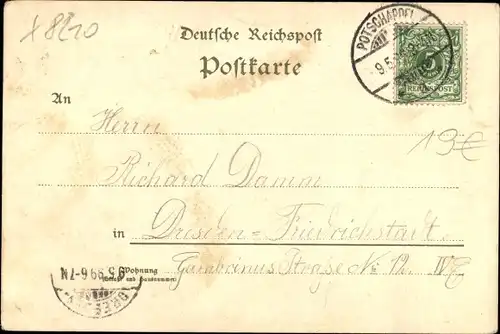 x 8210
Deutsche Reichspost
Postkarte
POTSCHAPPEL
9.5.
REICHSPOST
An
Herrn
19€
Richard Damm
in Dresden-Friedrichstadt.
Wohnung
(Straße und Hausnummer)
Gambrinus Straße No 12. IV
9 5 99 6-7N